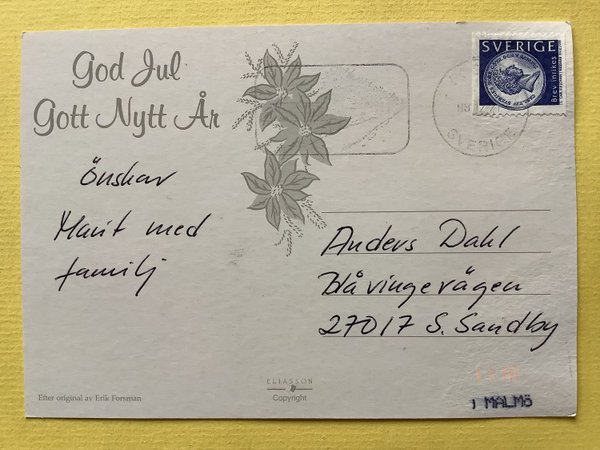 God Jul
Gott Nytt År
Önskar
Marit med
familj
SVERIGE
Brev inrikes
SVERIGE
Anders Dahl
Blåvingevägen
27017 S. Sandby
Efter original av Erik Forsman
ELIASSON
Copyright
I MALMÖ